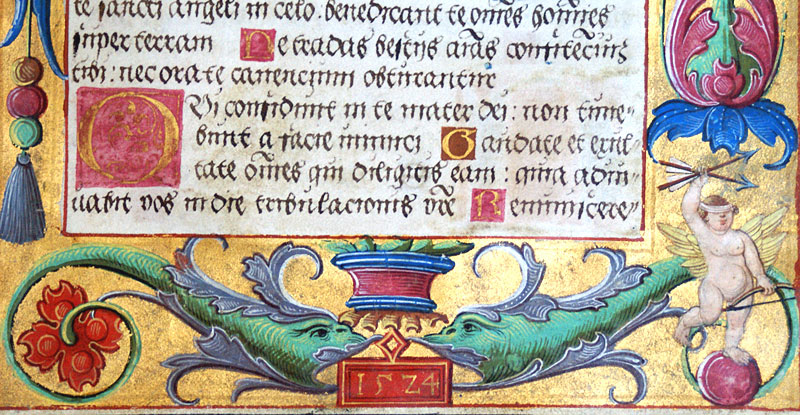 te sancti angeli in celo. benedicant te om̃es hom̃nes
super terram Ne tradas bestijs aĩas confitẽcium
tibi: nec ora te canencium obturantur
Qui confidunt in te mater dei: non time-
bunt a facie inimici Gaudate et exul-
tate om̃es qui diligitis eam: quia adiu-
vabit vos in die tribulacionis vr̃e
1524